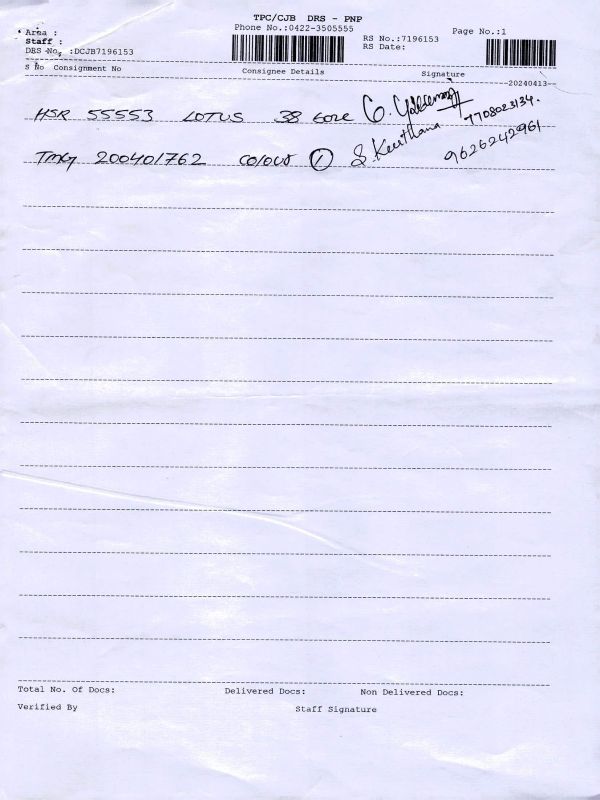 TPC/CJB DRS - PNP
Area :
Phone No.:0422-3505555
Page No.:1
Staff :
RS No.:7196153
DRS No. :DCJB7196153
RS Date:
S No Consignment No Consignee Details Signature
20240413
HSR 55553 LOTUS 38 7708023134.
TMG 200401762 COLOUR 1 S. Keerthana 9626242961
Total No. Of Docs: Delivered Docs: Non Delivered Docs:
Verified By Staff Signature